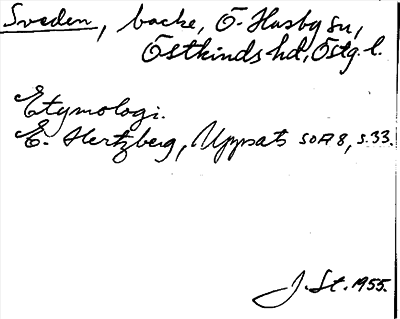 Sveden, backe, Ö. Husby sn,
Östkinds hd, Östg. l.
Etymologi.
E. Hertzberg, Uppsats SOA 8, s. 33.
J. St. 1955.